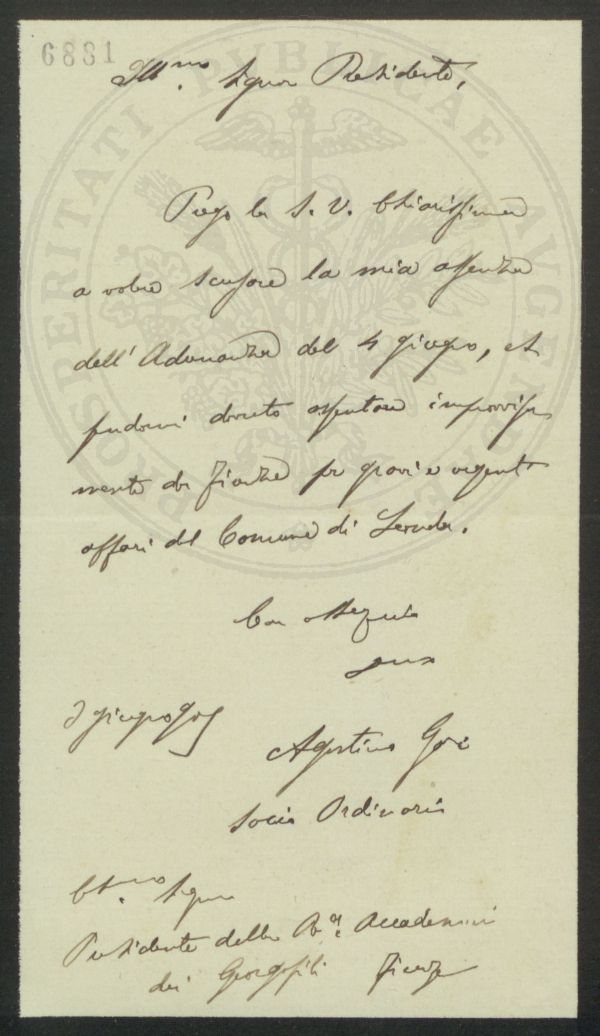 6881
PROSPERITATI PVBLICAE AVGENDAE
Ill.mo Signor Presidente,
Prego la S. V. Chiarissima
a voler scusare la mia assenza
dell'Adunanza del 4 giugno, es
sendomi dovuto assentare improvvisa
mente da Firenze per gravi e urgenti
affari del Comune di
Con ossequio
Agostino Gori
Socio Ordinario
giugno
Ch.mo Signor
Presidente della R. Accademia
dei Georgofili Firenze